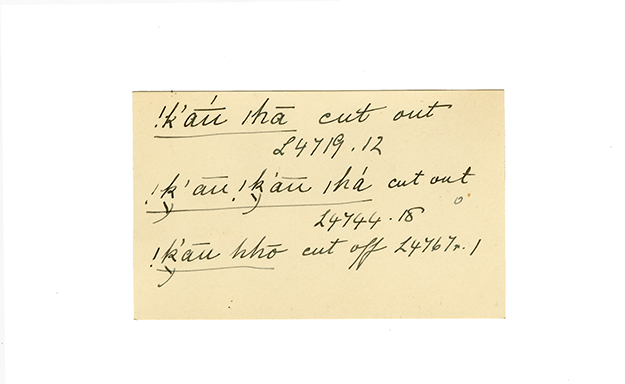 !k'áṅ ıhā cut out
L4719.12
!k'āū !k'āū ıhá cut out
L4744.18
!k'āū hhō cut off L4767r.1